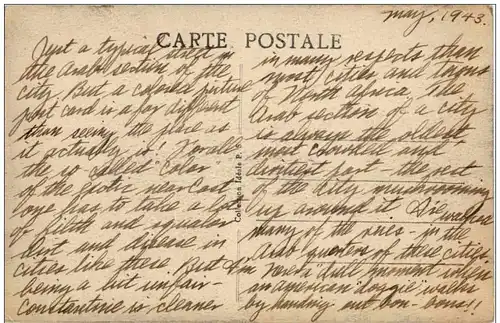 may, 1943.
CARTE POSTALE
Just a typical street in
the Arab section of the
city. But a colored picture
post card is a far different
than seeing the place as
it actually is! For all
the so called color
of the exotic near east
one has to take a lot
of filth and squalor
dirt and disease in
cities like these. But I'm
being a bit unfair -
Constantine is cleaner
Collection Idéale P. S.
in many respects than
most cities and towns
of North Africa. The
Arab section of a city
is always the oldest
most crowded and
dirtiest part - the rest
of the city mushrooming
up around it. I've walked
many of the rues - in the
Arab quarters of these cities.
Never a dull moment when
an american "doggie" walks
by handing out bon-bons!!